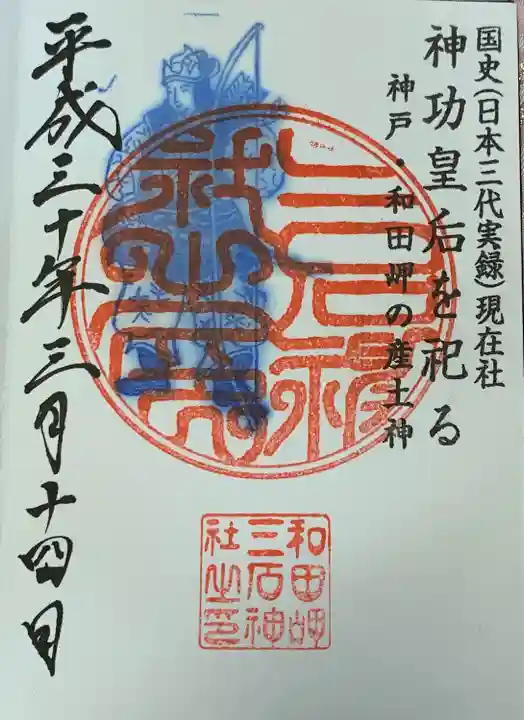 国史（日本三代実録）現在社
神功皇后を祀る
神戸・和田岬の産土神
三石神
社之印
和田岬
三石神
社之印
平成三十年三月十四日